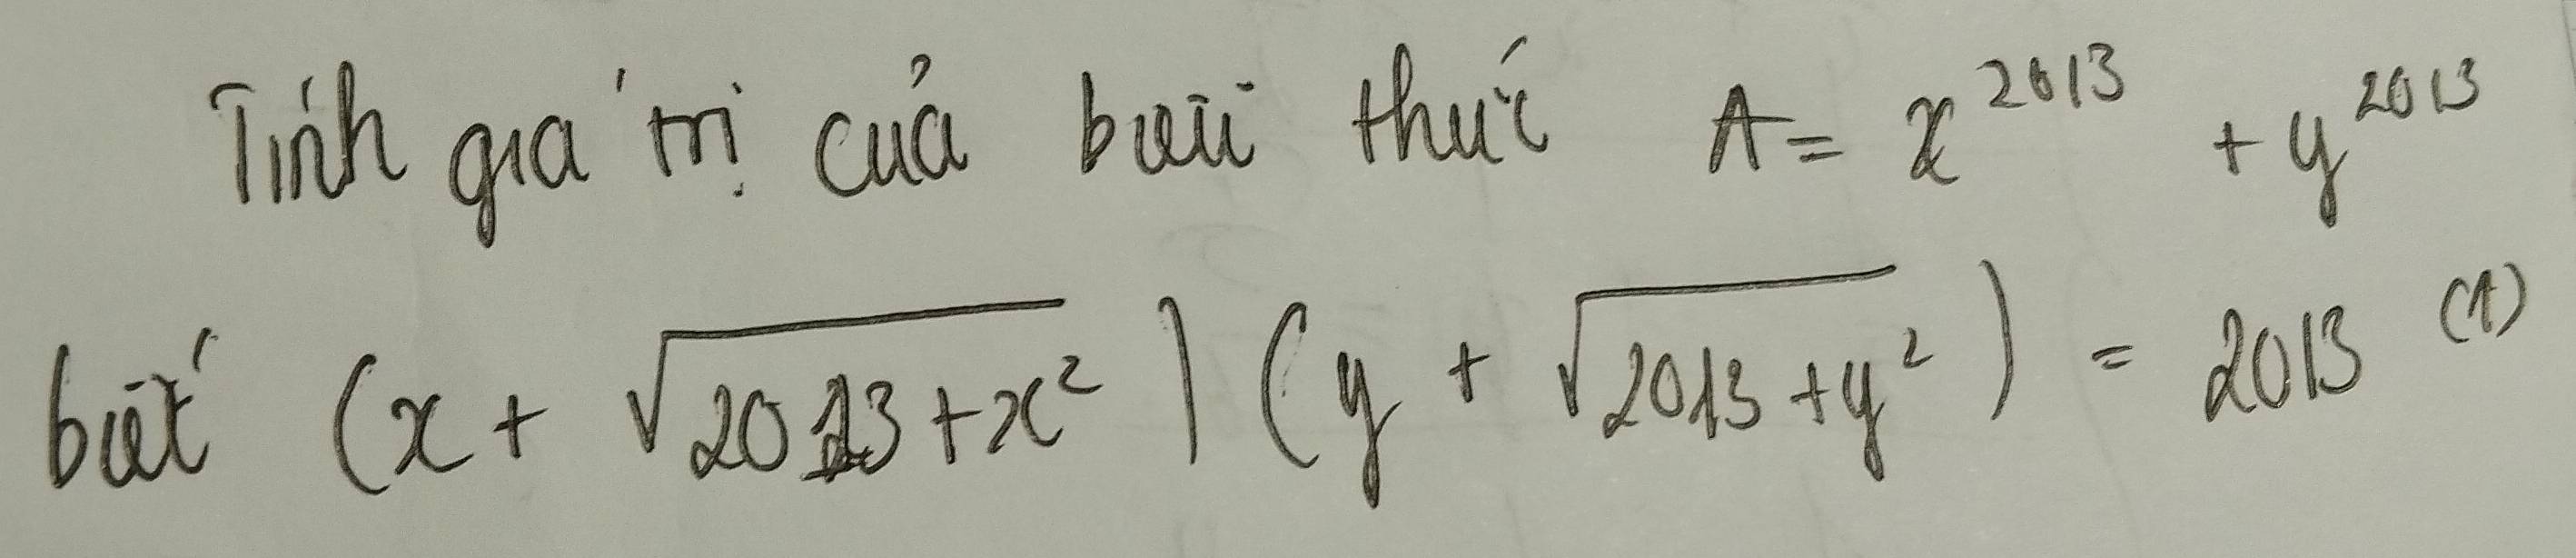 Tính giá trị của biểu thức A = x^2013 + y^2013
biết (x + √(2013 + x²)) (y + √(2013 + y²)) = 2013 (1)